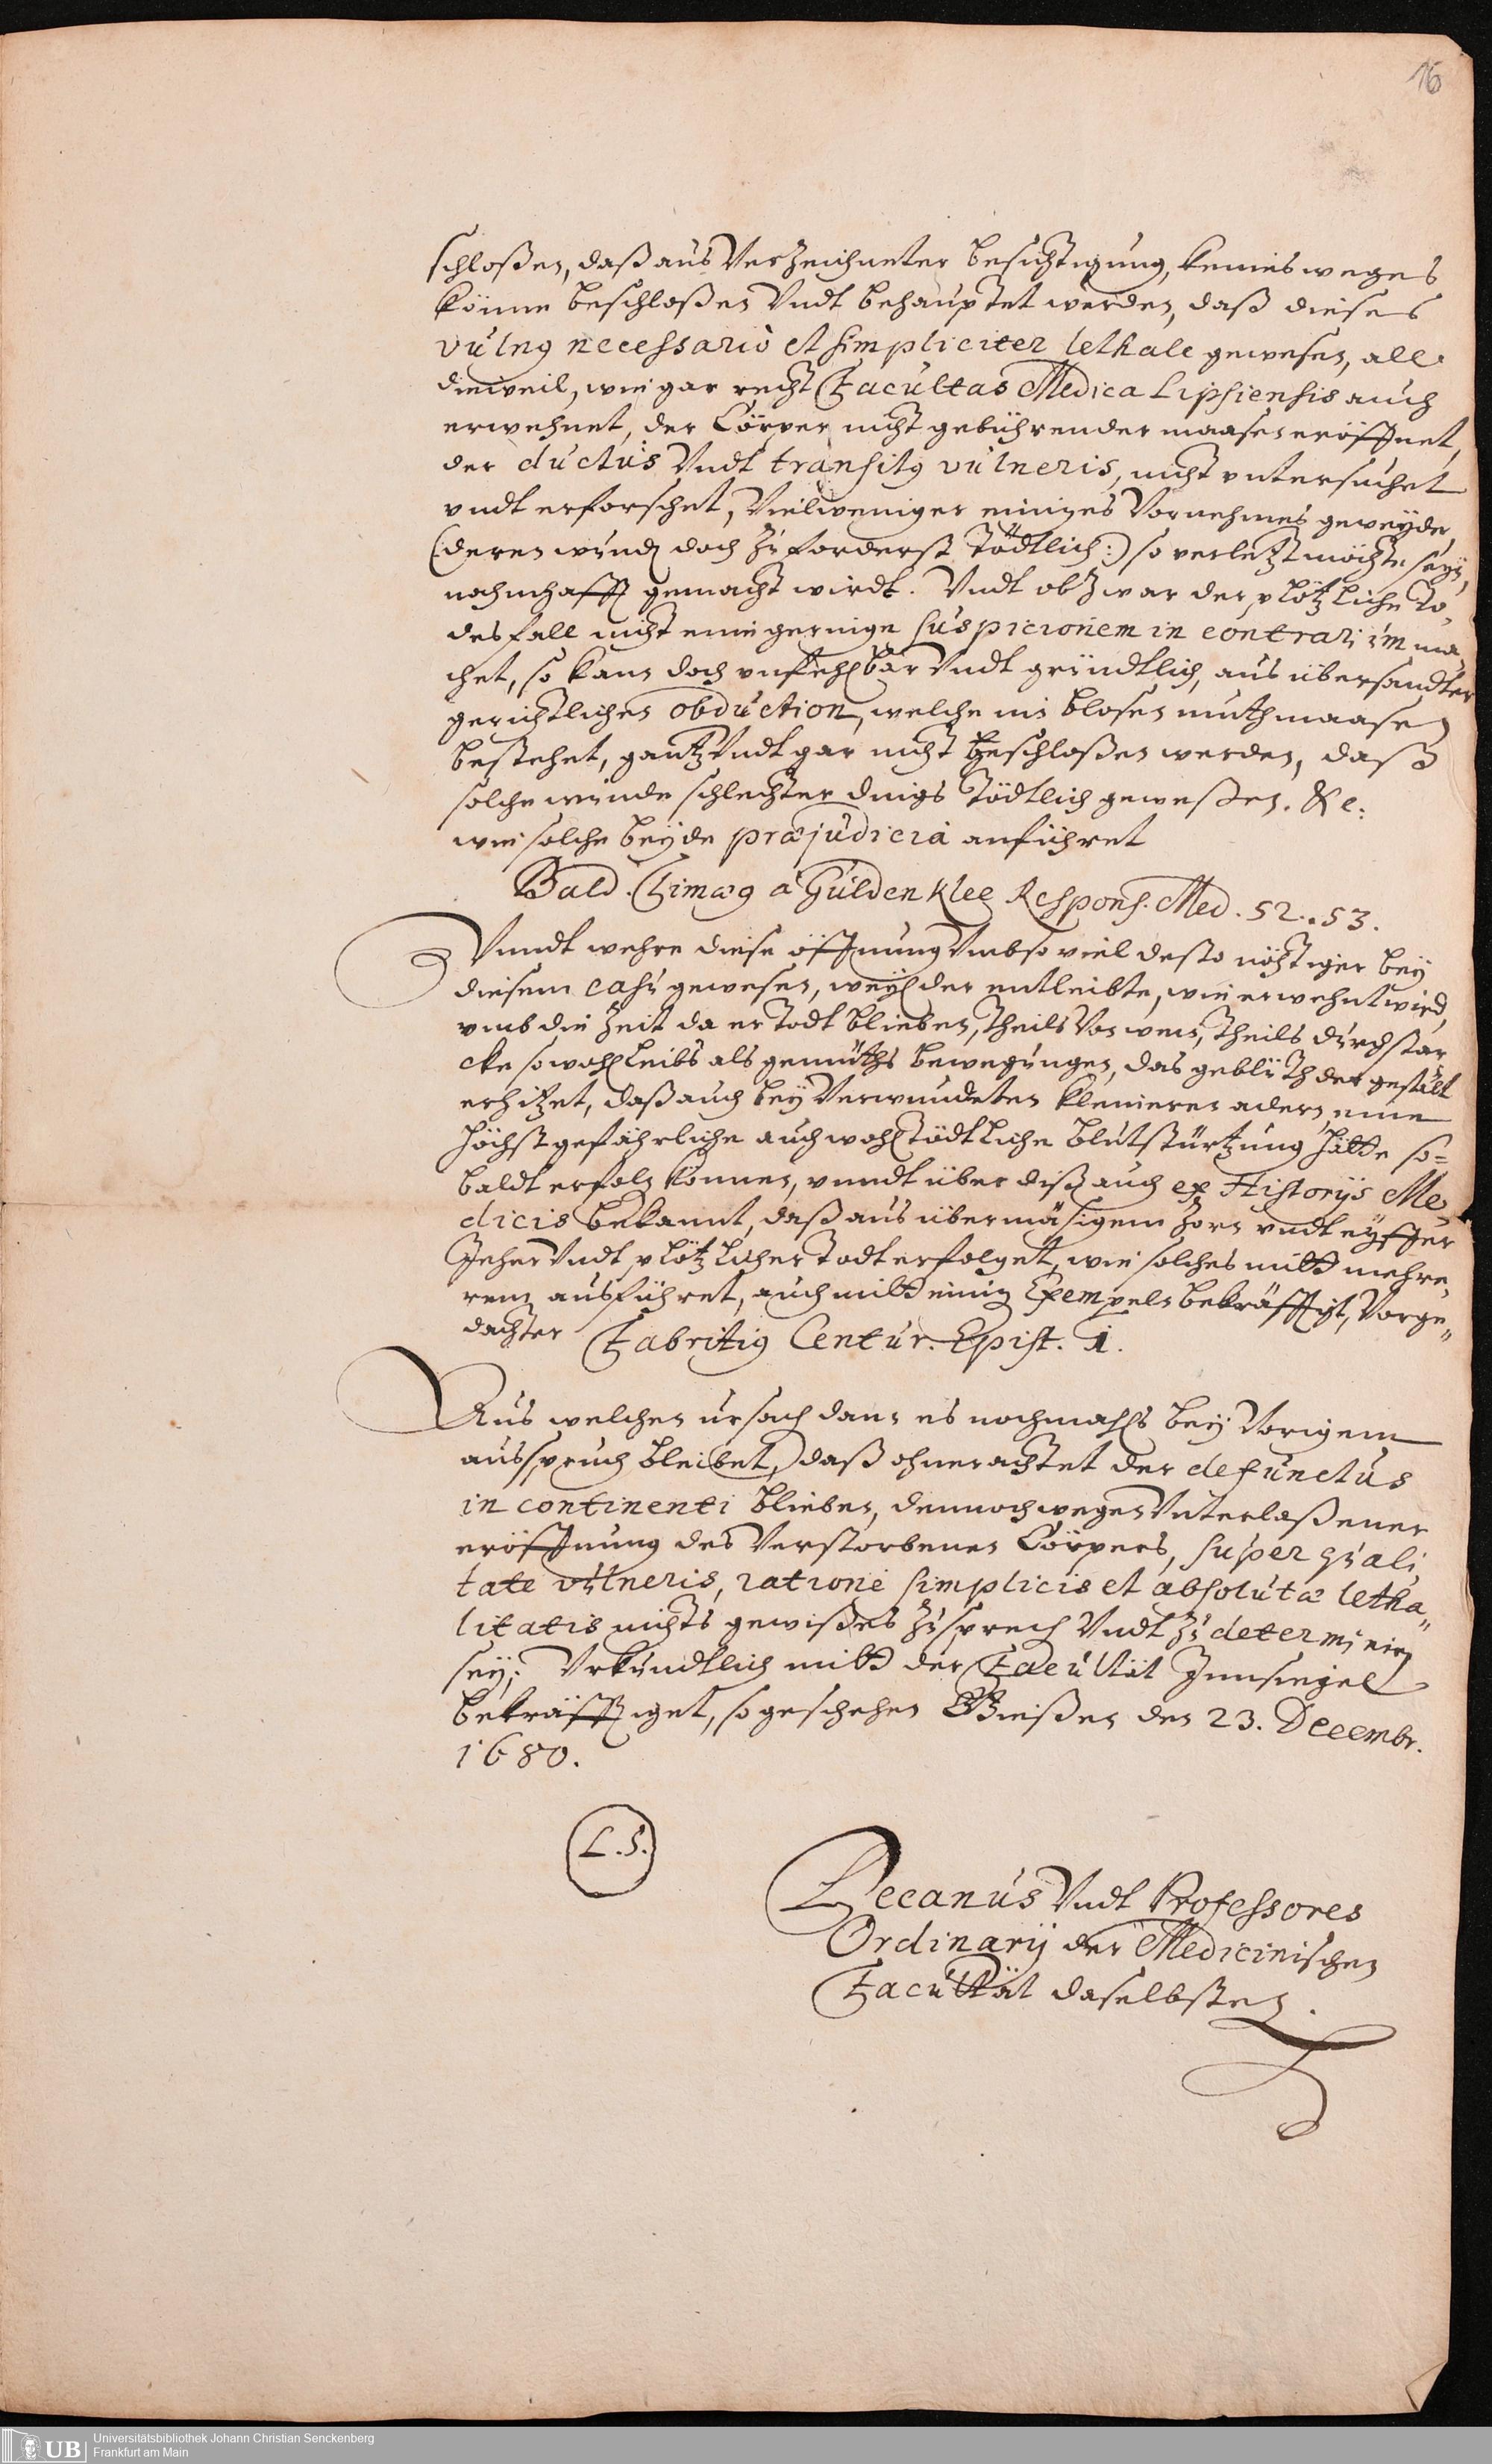 16
schloßen, daß aus Verzeichneter besichtigung, keines weges
könne beschloßen Vndt behauptet werden, daß dieses
vulnꝰ necessario et simpliciter lethale gewesen, all
dieweil, wie gar recht Facultas Medica Lipsiensis auch
erwehnet, der Cörper nicht gebührender maasen eröffnet,
der ductus Vndt transitꝰ vulneris, nicht vntersuchet
vndt erforschet, Vielweniger einiges Vornehmes geweyde,
(deren wund doch zuforderst tödtlich:) so verletzt möchte seyn,
nahmhafft gemacht wirdt. Vndt ob zwar der plötzliche to,
desfall nicht eine geringe suspicionem in contrarium ma,
chet, so kann doch vnfehlbar Vndt gründtlich, aus übersandter
gerichtlichen obduction, welche in blosen muthmaasen
bestehet, gantz Vndt gar nicht geschloßen werden, daß
solche wunde schlechter dings tödtlich geweßen. &c:
wie solche beyde præjudicia anführet
Bald. Timæꝰ a Güldenklee Respons. Med. 52. 53.
Vnndt wehre diese öffnung Vmb so viel desto nöhtiger bey
diesem casu gewesen, weyl der entleibte, wie erwehnt wird,
vmb die Zeit da er todt blieben, theils Von wein, theils durch star
cke sowohl leibs als gemüths bewegungen, das geblüth der gestalt
erhitzet, daß auch bey Verwundeten kleineren adern eine
höchst gefährliche auch wohl tödtliche blutstürtzung hätte so=
baldt erfolgen können, vnndt über diß auch ex Historijs Me,
dicis bekannt, daß aus übermäsigem Zorn vndt eyffer
Jeher Vndt plötzlicher todt erfolget, wie solches mitt mehre,
rem ausführet, auch mitt einig Exempeln bekräfftigt, Vorge„
dachter Fabritiꝰ Centur. Epist. 1.
Aus welchen ursach dann es nochmahls bey Vorigem
ausspruch bleibet, daß ohnerachtet der defunctus
in continenti blieben, dennoch wegen Vnterlaßener
eröffnung des Verstorbenen Cörpers, super quali,
tate vulneris, ratione simplicis et absolutæ letha„
litatis nichts gewißes zu sprech Vndt zu determinirn
sey; Vrkundtlich mitt der Facultät Innsiegel
bekräfftiget, so geschehen Gießen den 23. Decembr.
1680.
L.S.
Decanus Vndt Professores
Ordinarij der Medicinischen
Facultät daselbsten.
UB
Universitätsbibliothek Johann Christian Senckenberg
Frankfurt am Main